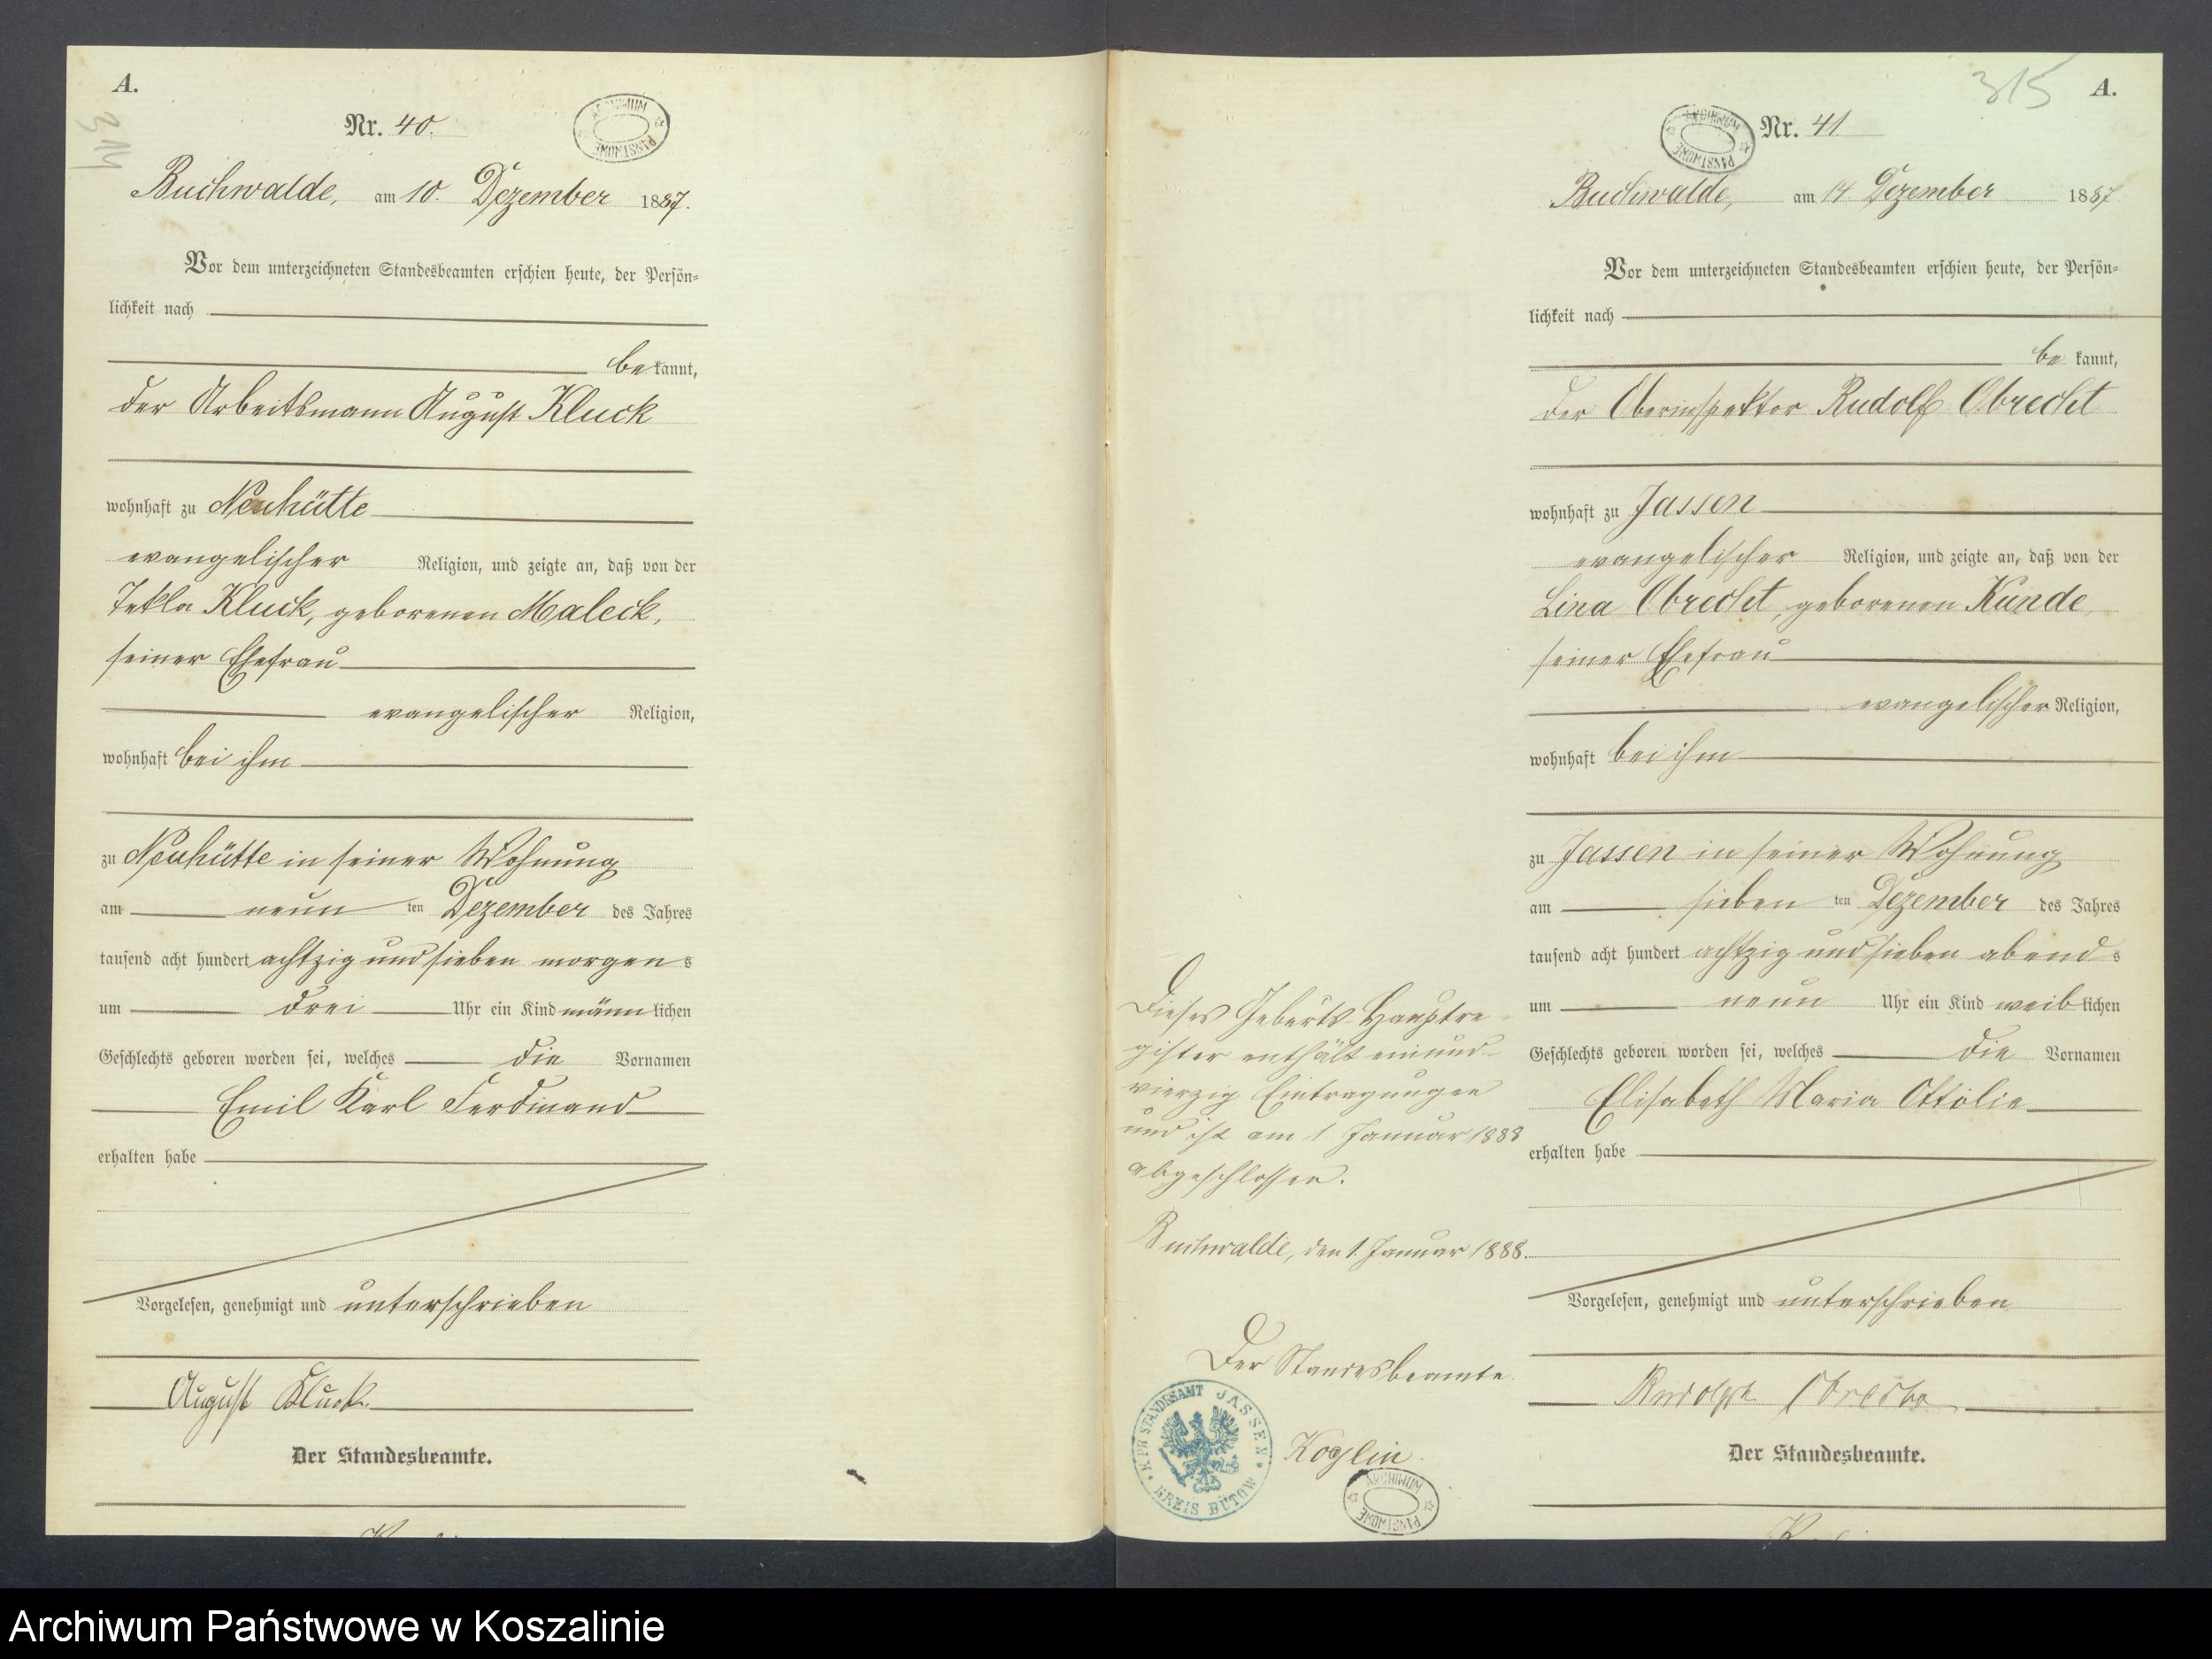 A.
314
Nr. 40.
ARCHIWUM PAŃSTWOWE
Buchwalde, am 10. Dezember 1887.
Vor dem unterzeichneten Standesbeamten erschien heute, der Persön-
lichkeit nach
bekannt,
der Arbeitsmann August Kluck
wohnhaft zu Neuhütte
evangelischer Religion, und zeigte an, daß von der
Tekla Kluck, geborenen Maleck,
seiner Ehefrau
evangelischer Religion,
wohnhaft bei ihm
zu Neuhütte in seiner Wohnung
am neun ten Dezember des Jahres
tausend acht hundert achtzig und sieben morgens
um drei Uhr ein Kind männlichen
Geschlechts geboren worden sei, welches die Vornamen
Emil Karl Ferdinand
erhalten habe
Vorgelesen, genehmigt und unterschrieben
August Kluck
Der Standesbeamte.
315
A.
ARCHIWUM PAŃSTWOWE
Nr. 41
Buchwalde, am 14. Dezember 1887
Vor dem unterzeichneten Standesbeamten erschien heute, der Persön-
lichkeit nach
bekannt,
der Oberinspektor Rudolf Obrecht
wohnhaft zu Jassen
evangelischer Religion, und zeigte an, daß von der
Lina Obrecht, geborenen Kunde,
seiner Ehefrau
evangelischer Religion,
wohnhaft bei ihm
zu Jassen in seiner Wohnung
am sieben ten Dezember des Jahres
tausend acht hundert achtzig und sieben abends
um neun Uhr ein Kind weiblichen
Geschlechts geboren worden sei, welches die Vornamen
Elisabeth Maria Ottilie
erhalten habe
Vorgelesen, genehmigt und unterschrieben
Rudolph Obrecht
Der Standesbeamte.
Dieses Geburts-Hauptre-
gister enthält einund-
vierzig Eintragungen
und ist am 1 Januar 1888
abgeschlossen.
Buchwalde, den 1. Januar 1888.
Der Standesbeamte.
Koglin.
K. PR. STANDESAMT JASSEN
KREIS BÜTOW
ARCHIWUM PAŃSTWOWE
Archiwum Państwowe w Koszalinie